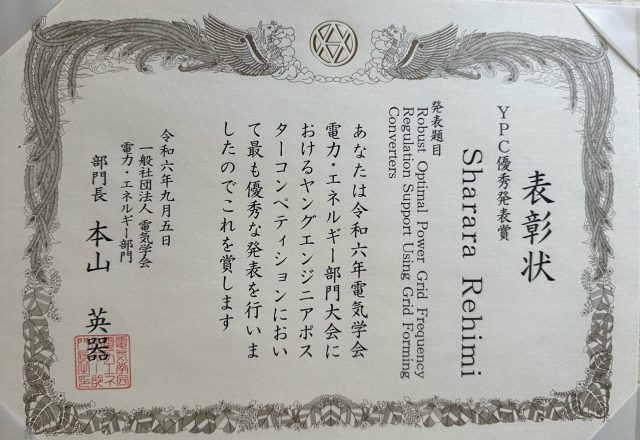 表彰状
YPC優秀発表賞
Sharara Rehimi
発表題目
Robust Optimal Power Grid Frequency
Regulation Support Using Grid Forming
Converters
あなたは令和六年電気学会
電力・エネルギー部門大会に
おけるヤングエンジニアポス
ターコンペティションにおい
て最も優秀な発表を行いま
したのでこれを賞します
令和六年九月五日
一般社団法人 電気学会
電力・エネルギー部門
部門長 本山 英器